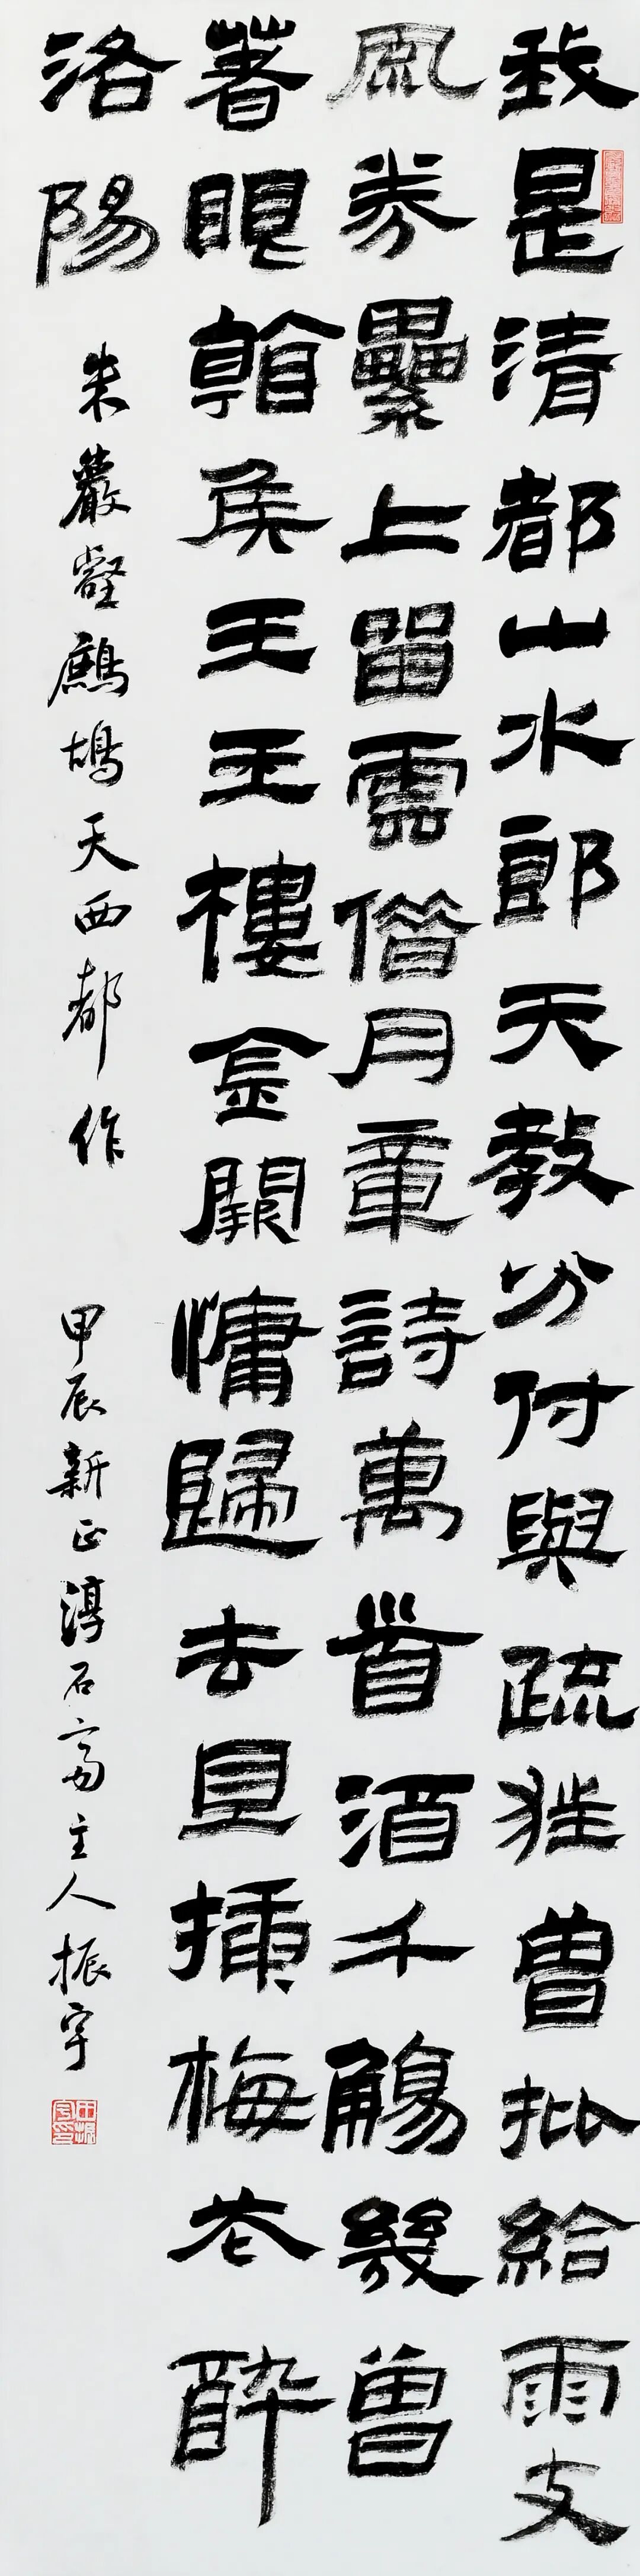 我是清都山水郎天教分付與疏狂曾批給雨支
風券纍上留雲借月章詩萬首酒千觴幾曾
著眼看侯王玉樓金闕慵歸去且插梅花醉
洛陽 朱巖壑鷓鴣天西都作 甲辰新正淳石齋主人振宇